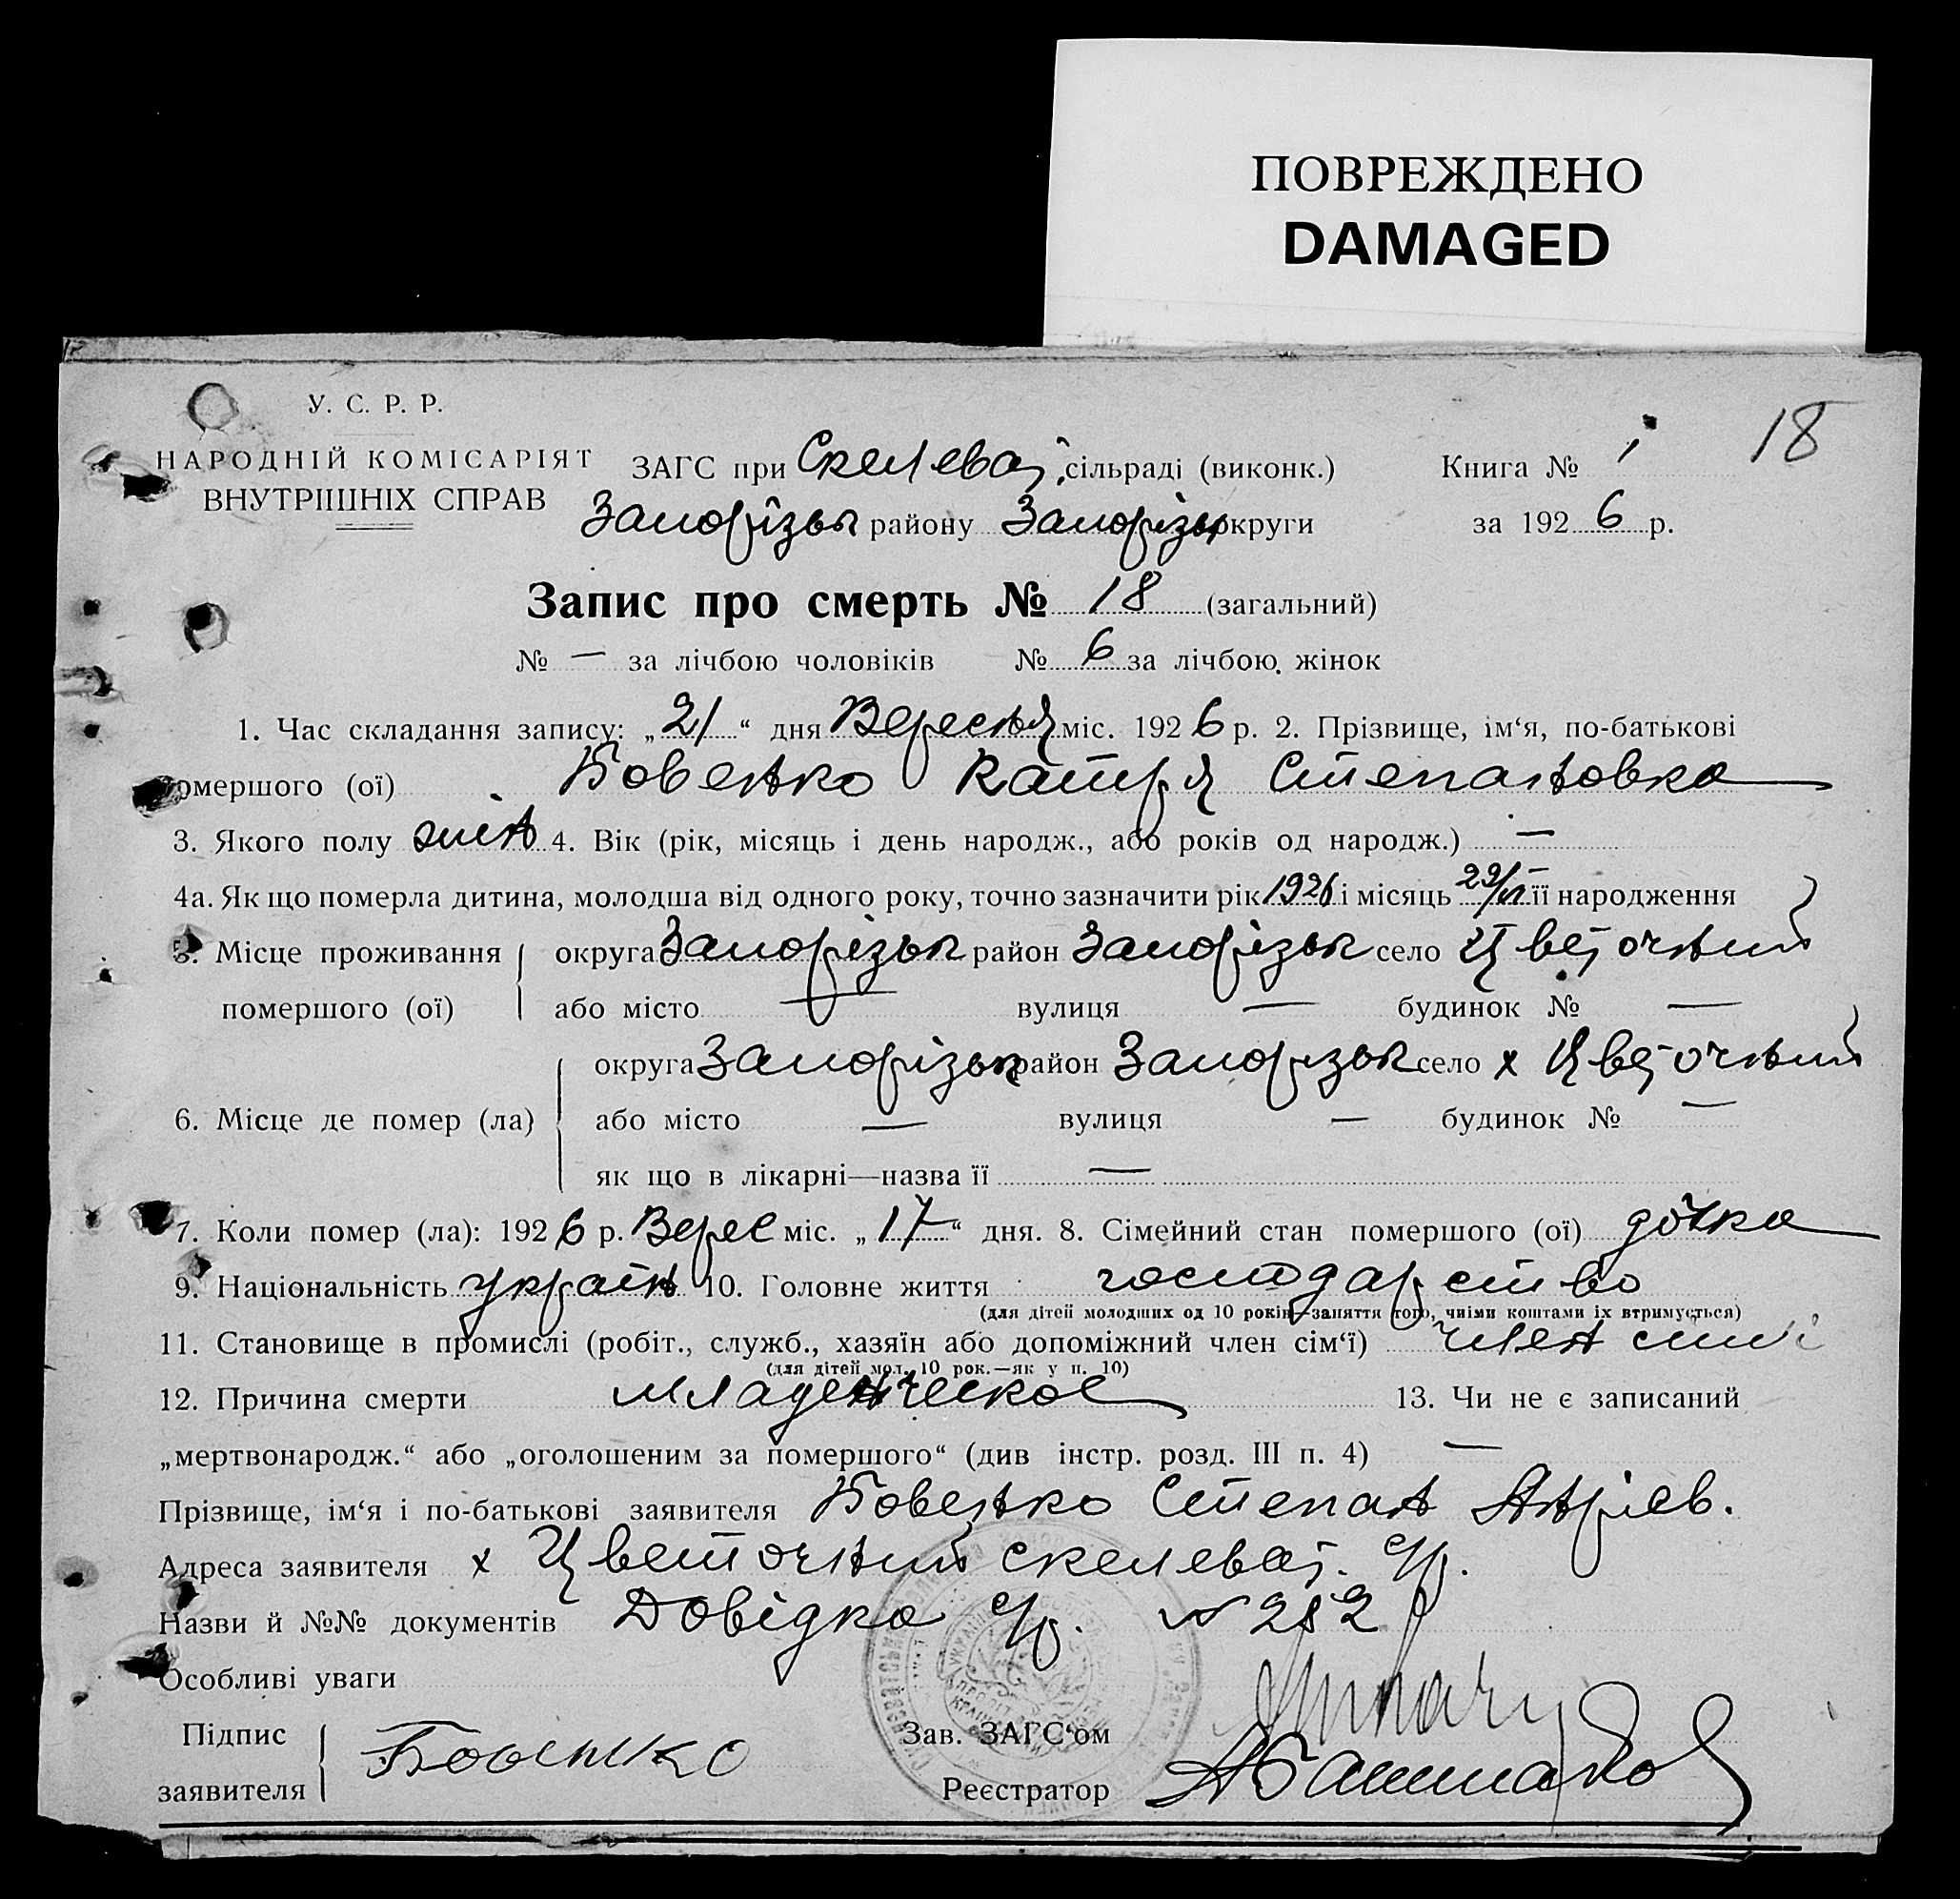 ПОВРЕЖДЕНО
DAMAGED
У. С. Р. Р.
18
НАРОДНІЙ КОМІСАРІЯТ
ВНУТРІШНІХ СПРАВ
ЗАГС при Скелеват. сільраді (виконк.) Книга № 1
Запорізьк району Запорізьк округи за 1926 р.
Запис про смерть № 18 (загальний)
№ — за лічбою чоловіків № 6 за лічбою жінок
1. Час складання запису: „21“ дня Вересня міс. 1926 р. 2. Прізвище, ім‘я, по-батькові
помершого (ої) Бовенко Катря Степановна
3. Якого полу жін 4. Вік (рік, місяць і день народж., або років од народж.) —
4а. Як що померла дитина, молодша від одного року, точно зазначити рік 1926 і місяць 29/VI її народження
5. Місце проживання округа Запорізьк район Запорізьк село Цветочный
помершого (ої) або місто — вулиця — будинок № —
округа Запорізьк район Запорізьк село х Цветочный
6. Місце де помер (ла) або місто — вулиця — будинок № —
як що в лікарні—назва її —
7. Коли помер (ла): 1926 р. Верес міс. „17“ дня. 8. Сімейний стан помершого (ої) дочка
9. Національність україн 10. Головне життя господарство
(для дітей молодших од 10 років—заняття того, чиїми коштами їх втримується)
11. Становище в промислі (робіт., служб., хазяїн або допоміжний член сім‘ї) член сімї
(для дітей мол. 10 рок.—як у п. 10)
12. Причина смерти младенческое 13. Чи не є записаний
„мертвонародж.“ або „оголошеним за помершого“ (див інстр. розд. III п. 4) —
Прізвище, ім‘я і по-батькові заявителя Бовенко Степан Андріев.
Адреса заявителя х Цветочный скелеват. с/р.
Назви й №№ документів Довідка с/р. № 282
Особливі уваги
Підпис
заявителя Бовенко
Зав. ЗАГС‘ом
Реєстратор